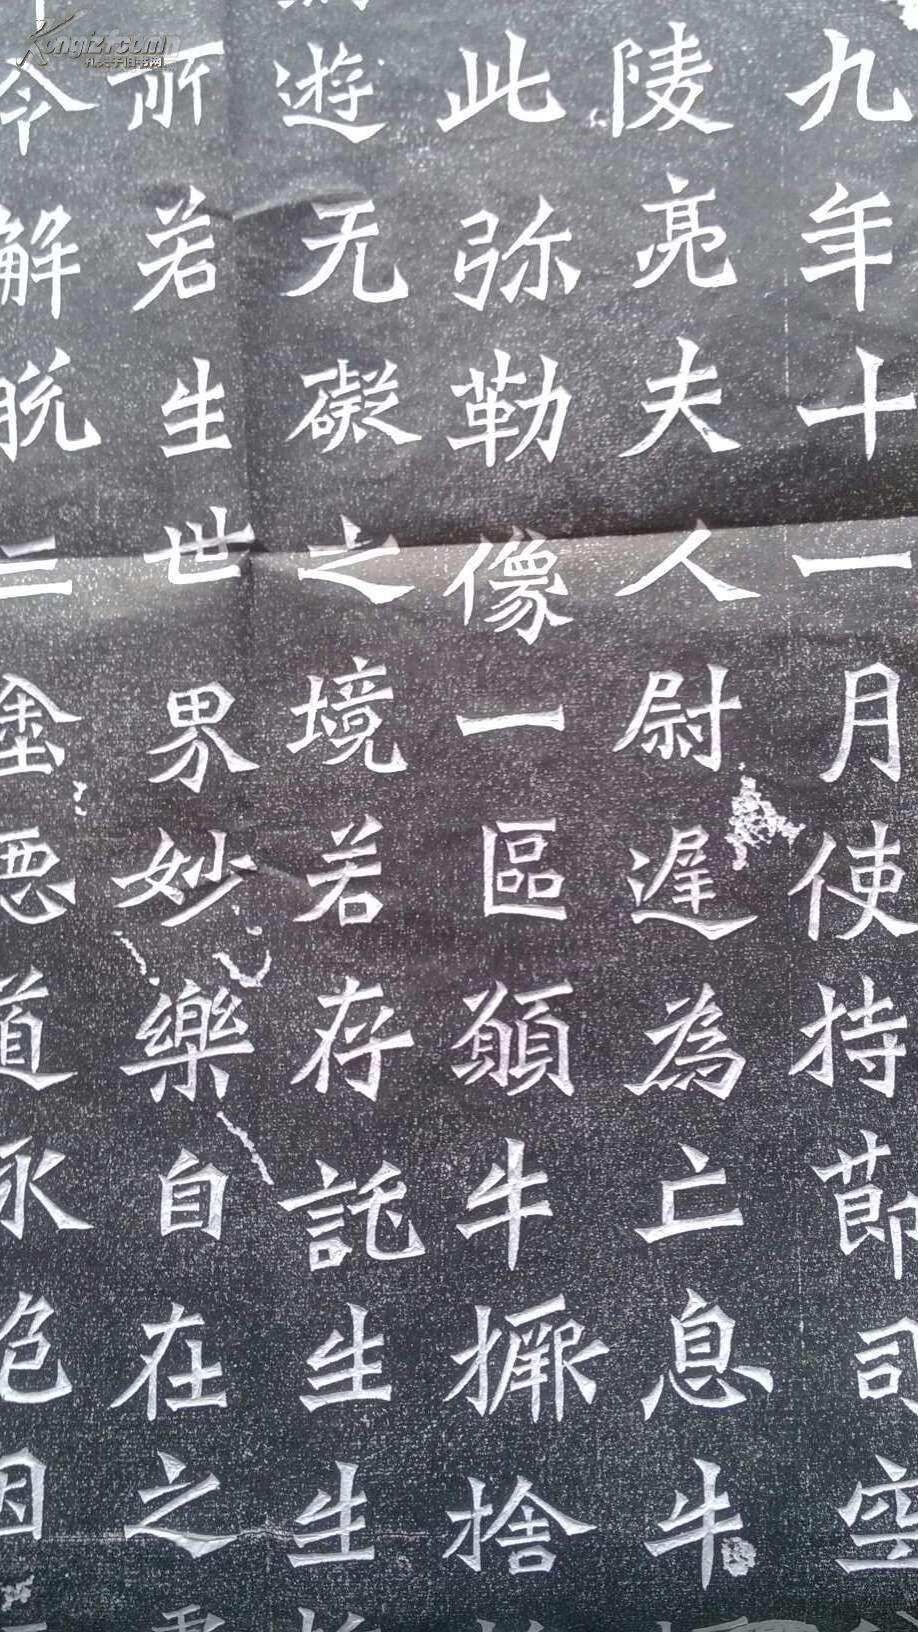 九年十一月使持節司空
陵亮夫人尉遲為亡息牛
此弥勒像一區願牛橛捨
遊无礙之境若存託生生
所若生世界妙樂自在之
令解脱三塗惡道永絶因
Kongfz.com
孔夫子旧书网